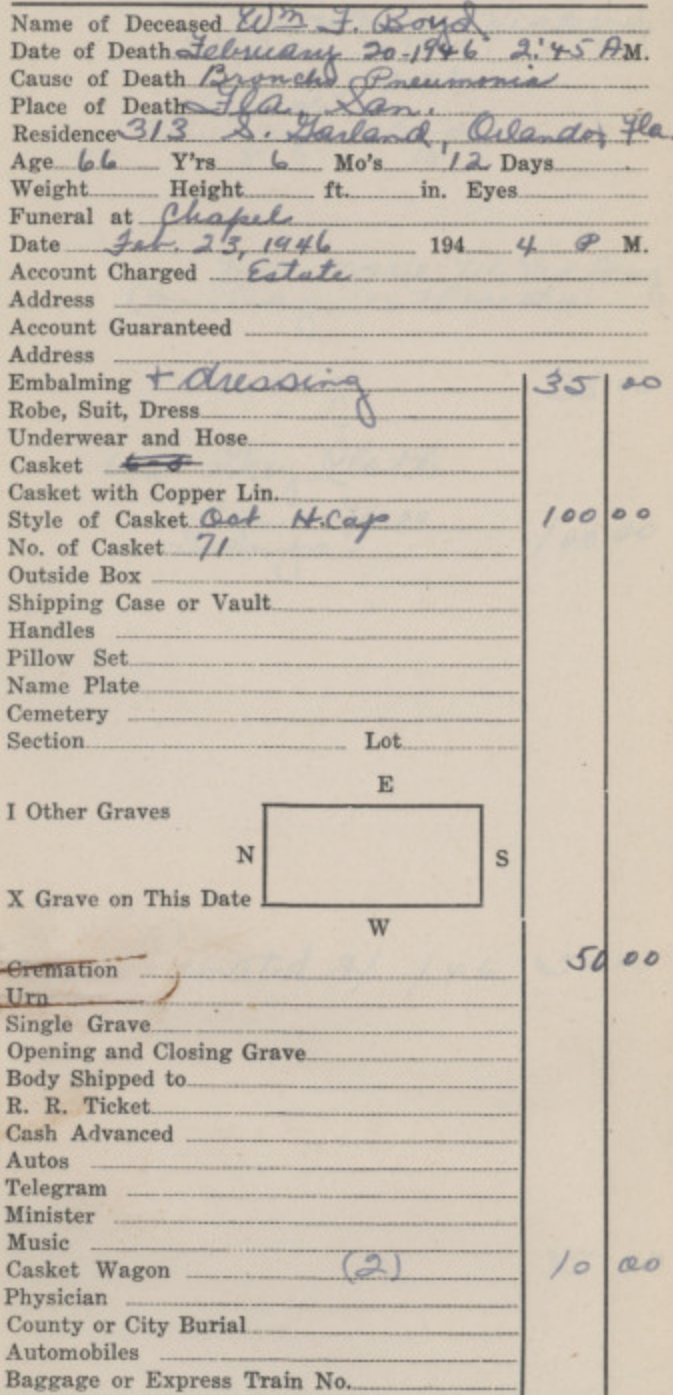 Name of Deceased Wm F. Boyd
Date of Death February 20-1946 2:45 A M.
Cause of Death Broncho Pneumonia
Place of Death Fla. San.
Residence 313 S. Garland, Orlando, Fla.
Age 66 Y'rs 6 Mo's 12 Days
Weight Height ft. in. Eyes
Funeral at Chapel
Date Feb. 23, 1946 194 4 P M.
Account Charged Estate
Address
Account Guaranteed
Address
Embalming + dressing 35 00
Robe, Suit, Dress
Underwear and Hose
Casket
Casket with Copper Lin.
Style of Casket Oct H.Cap 100 00
No. of Casket 71
Outside Box
Shipping Case or Vault
Handles
Pillow Set
Name Plate
Cemetery
Section Lot
E
I Other Graves
N S
X Grave on This Date
W
Cremation 50 00
Urn
Single Grave
Opening and Closing Grave
Body Shipped to
R. R. Ticket
Cash Advanced
Autos
Telegram
Minister
Music
Casket Wagon (2) 10 00
Physician
County or City Burial
Automobiles
Baggage or Express Train No.